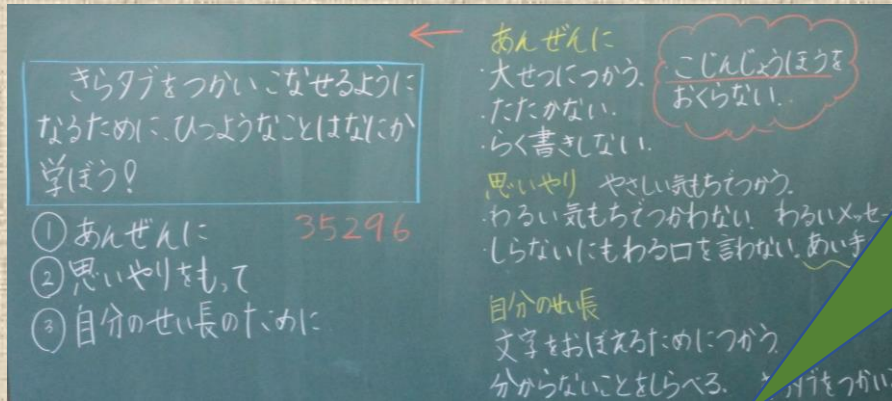 きらタブをつかいこなせるように
なるために、ひつようなことはなにか
学ぼう!
① あんぜんに
35296
② 思いやりをもって
③ 自分のせい長のために
あんぜんに
・大せつにつかう。
・たたかない。
・らく書きしない。
・こじんじょうほうを
おくらない。
思いやり やさしい気もちでつかう。
・わるい気もちでつかわない わるいメッセー
・しらないにもわる口を言わない。あい手
自分のせい長
文字をおぼえるためにつかう
分からないことをしらべる。 タブをつかい